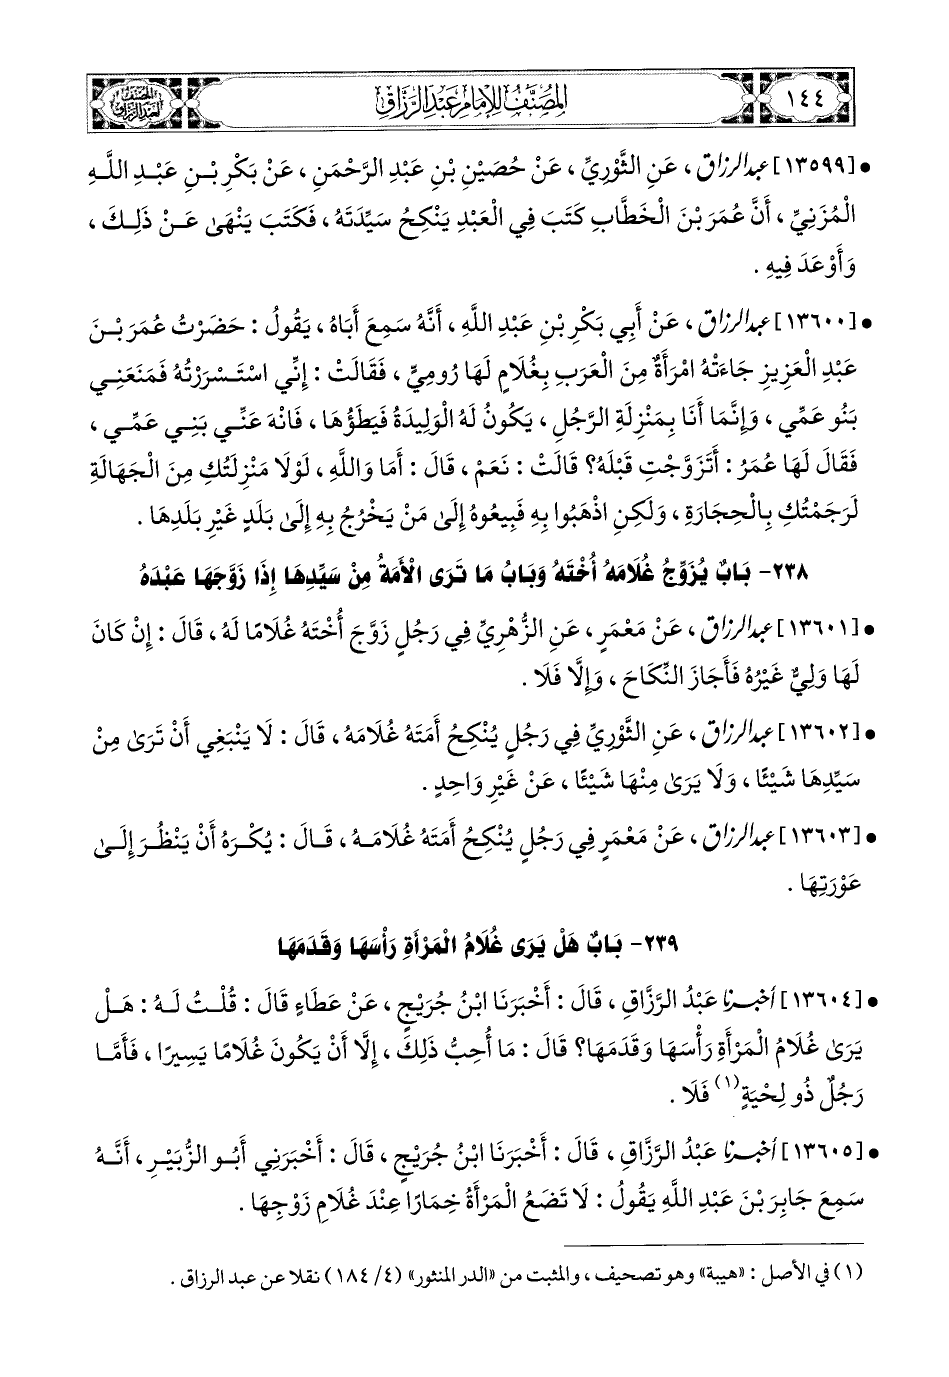 ١٤٤
المصنف للإمام عبد الرزاق
• [١٣٥٩٩] عبد الرزاق ، عَنِ الثَّوْرِيِّ ، عَنْ حُصَيْنِ بْنِ عَبْدِ الرَّحْمَنِ ، عَنْ بَكْرِ بْنِ عَبْدِ اللَّهِ
الْمُزَنِيِّ ، أَنَّ عُمَرَ بْنَ الْخَطَّابِ كَتَبَ فِي الْعَبْدِ يَنْكِحُ سَيِّدَتَهُ ، فَكَتَبَ يَنْهَىٰ عَنْ ذَلِكَ ،
وَأَوْعَدَ فِيهِ .
• [١٣٦٠٠] عبد الرزاق ، عَنْ أَبِي بَكْرِ بْنِ عَبْدِ اللَّهِ ، أَنَّهُ سَمِعَ أَبَاهُ ، يَقُولُ : حَضَرْتُ عُمَرَ بْنَ
عَبْدِ الْعَزِيزِ جَاءَتْهُ امْرَأَةٌ مِنَ الْعَرَبِ بِغُلَامٍ لَهَا رُومِيٍّ ، فَقَالَتْ : إِنِّي اسْتَسْرَرْتُهُ فَمَنَعَنِي
بَنُو عَمِّي ، وَإِنَّمَا أَنَا بِمَنْزِلَةِ الرَّجُلِ ، يَكُونُ لَهُ الْوَلِيدَةُ فَيَطَؤُهَا ، فَانْهَ عَنِّي بَنِي عَمِّي ،
فَقَالَ لَهَا عُمَرُ : أَتَزَوَّجْتِ قَبْلَهُ؟ قَالَتْ : نَعَمْ ، قَالَ : أَمَا وَاللَّهِ ، لَوْلَا مَنْزِلَتُكِ مِنَ الْجَهَالَةِ
لَرَجَمْتُكِ بِالْحِجَارَةِ ، وَلَكِنِ اذْهَبُوا بِهِ فَبِيعُوهُ إِلَىٰ مَنْ يَخْرُجُ بِهِ إِلَىٰ بَلَدٍ غَيْرِ بَلَدِهَا .
٢٣٨- بَابٌ يُزَوِّجُ غُلَامَهُ أُخْتَهُ وَبَابُ مَا تَرَى الْأَمَةُ مِنْ سَيِّدِهَا إِذَا زَوَّجَهَا عَبْدَهُ
• [١٣٦٠١] عبد الرزاق ، عَنْ مَعْمَرٍ ، عَنِ الزُّهْرِيِّ فِي رَجُلٍ زَوَّجَ أُخْتَهُ غُلَامًا لَهُ ، قَالَ : إِنْ كَانَ
لَهَا وَلِيٌّ غَيْرُهُ فَأَجَازَ النِّكَاحَ ، وَإِلَّا فَلَا .
• [١٣٦٠٢] عبد الرزاق ، عَنِ الثَّوْرِيِّ فِي رَجُلٍ يُنْكِحُ أَمَتَهُ غُلَامَهُ ، قَالَ : لَا يَنْبَغِي أَنْ تَرَىٰ مِنْ
سَيِّدِهَا شَيْئًا ، وَلَا يَرَىٰ مِنْهَا شَيْئًا ، عَنْ غَيْرِ وَاحِدٍ .
• [١٣٦٠٣] عبد الرزاق ، عَنْ مَعْمَرٍ فِي رَجُلٍ يُنْكِحُ أَمَتَهُ غُلَامَهُ ، قَالَ : يُكْرَهُ أَنْ يَنْظُرَ إِلَىٰ
عَوْرَتِهَا .
٢٣٩- بَابٌ هَلْ يَرَى غُلَامُ الْمَرْأَةِ رَأْسَهَا وَقَدَمَهَا
• [١٣٦٠٤] أخبرنا عَبْدُ الرَّزَّاقِ ، قَالَ : أَخْبَرَنَا ابْنُ جُرَيْجٍ ، عَنْ عَطَاءٍ قَالَ : قُلْتُ لَهُ : هَلْ
يَرَىٰ غُلَامُ الْمَرْأَةِ رَأْسَهَا وَقَدَمَهَا؟ قَالَ : مَا أُحِبُّ ذَلِكَ ، إِلَّا أَنْ يَكُونَ غُلَامًا يَسِيرًا ، فَأَمَّا
رَجُلٌ ذُو لِحْيَةٍ (١) فَلَا .
• [١٣٦٠٥] أخبرنا عَبْدُ الرَّزَّاقِ ، قَالَ : أَخْبَرَنَا ابْنُ جُرَيْجٍ ، قَالَ : أَخْبَرَنِي أَبُو الزُّبَيْرِ ، أَنَّهُ
سَمِعَ جَابِرَ بْنَ عَبْدِ اللَّهِ يَقُولُ : لَا تَضَعُ الْمَرْأَةُ خِمَارًا عِنْدَ غُلَامِ زَوْجِهَا .
(١) في الأصل : «هيبة» وهو تصحيف ، والمثبت من «الدر المنثور» (٤/ ١٨٤) نقلا عن عبد الرزاق .